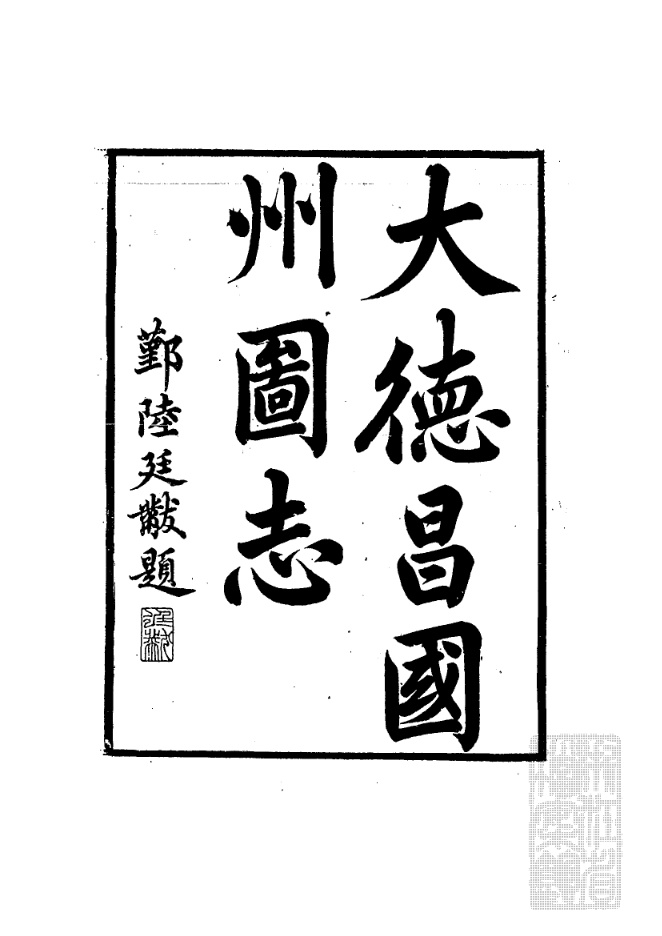 大德昌國
州圖志
鄞陸廷黻題
廷黻